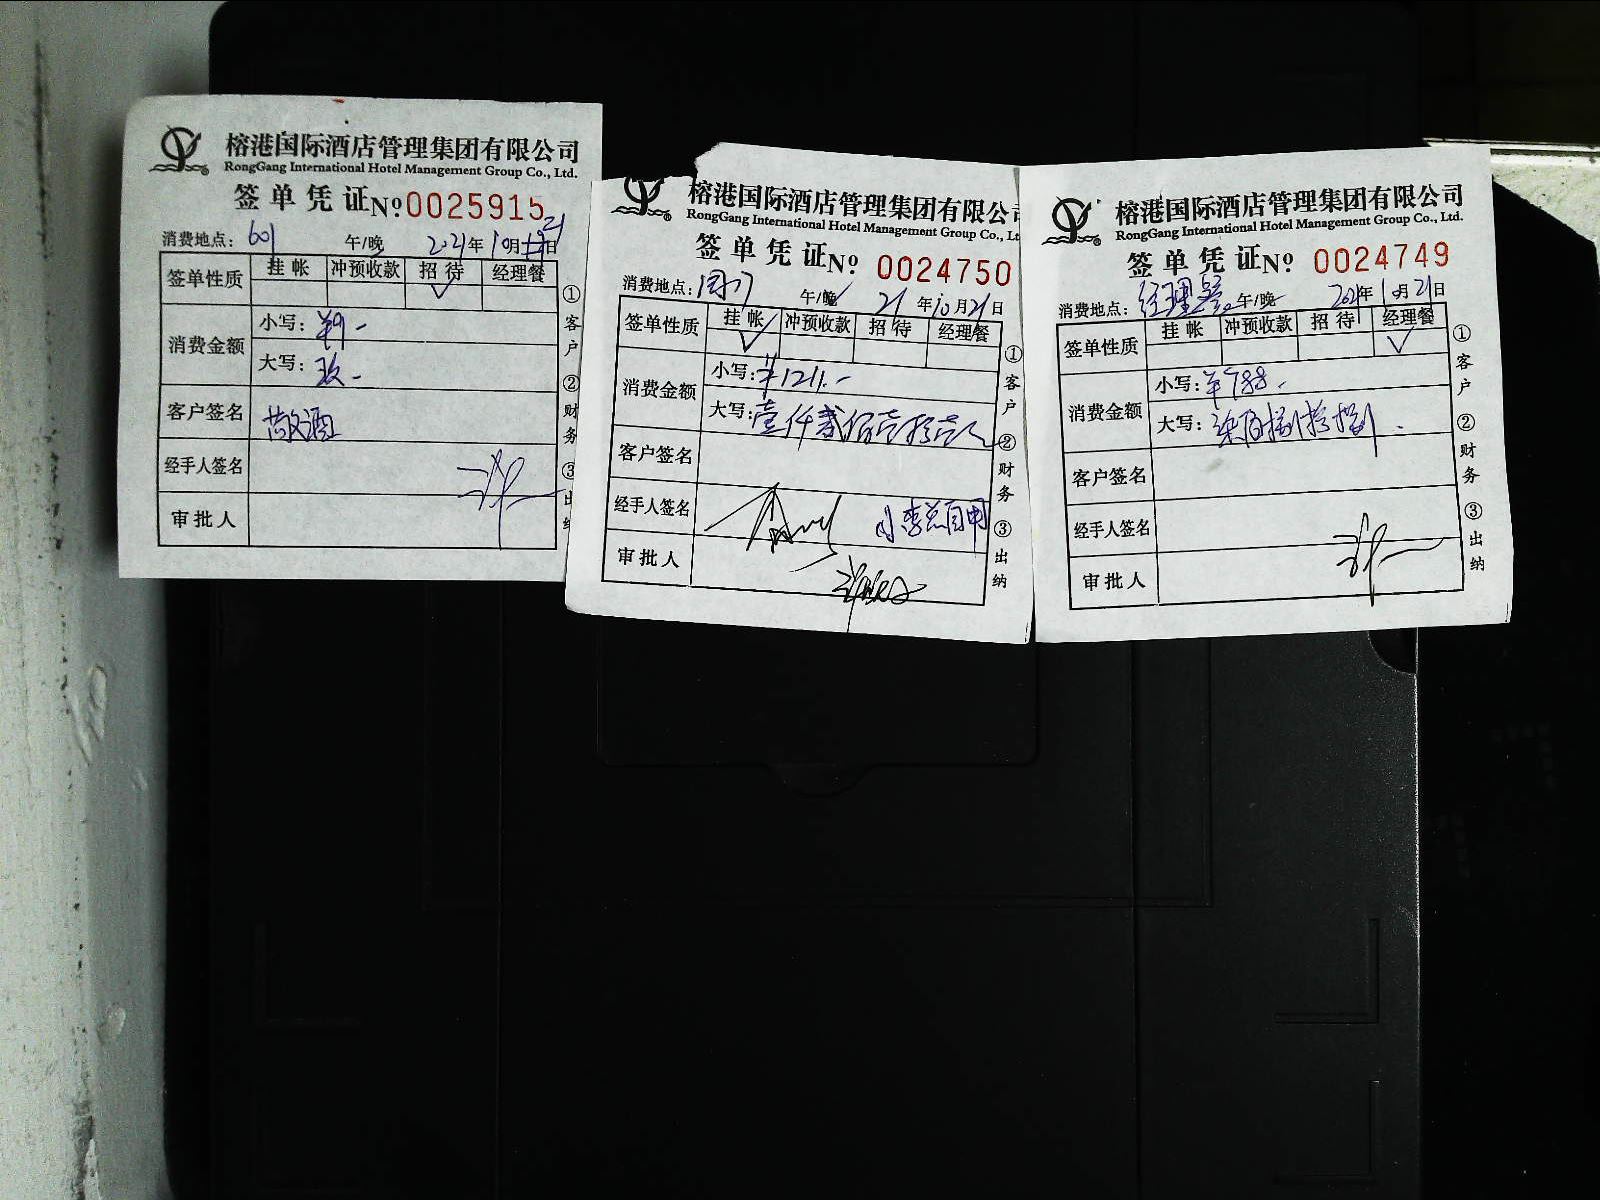 榕港国际酒店管理集团有限公司
RongGang International Hotel Management Group Co., Ltd.
签单凭证 No 0025915
消费地点: 601 午/晚 2021年10月21日
签单性质 挂帐 冲预收款 招待 经理餐
✓
消费金额 小写: ¥9-
大写: 玖-
客户签名 敬酒
经手人签名
审批人
①客户 ②财务 ③出纳
榕港国际酒店管理集团有限公司
RongGang International Hotel Management Group Co., Lt
签单凭证 No 0024750
消费地点: 午/晚 21年10月21日
签单性质 挂帐 冲预收款 招待 经理餐
✓
消费金额 小写: ¥1211.-
大写: 壹仟贰佰壹拾壹元
客户签名
经手人签名 小李总自用
审批人
①客户 ②财务 ③出纳
榕港国际酒店管理集团有限公司
RongGang International Hotel Management Group Co., Ltd.
签单凭证 No 0024749
消费地点: 经理餐 午/晚 2021年10月21日
签单性质 挂帐 冲预收款 招待 经理餐
✓
消费金额 小写: ¥788.-
大写: 柒佰捌拾捌
客户签名
经手人签名
审批人
①客户 ②财务 ③出纳